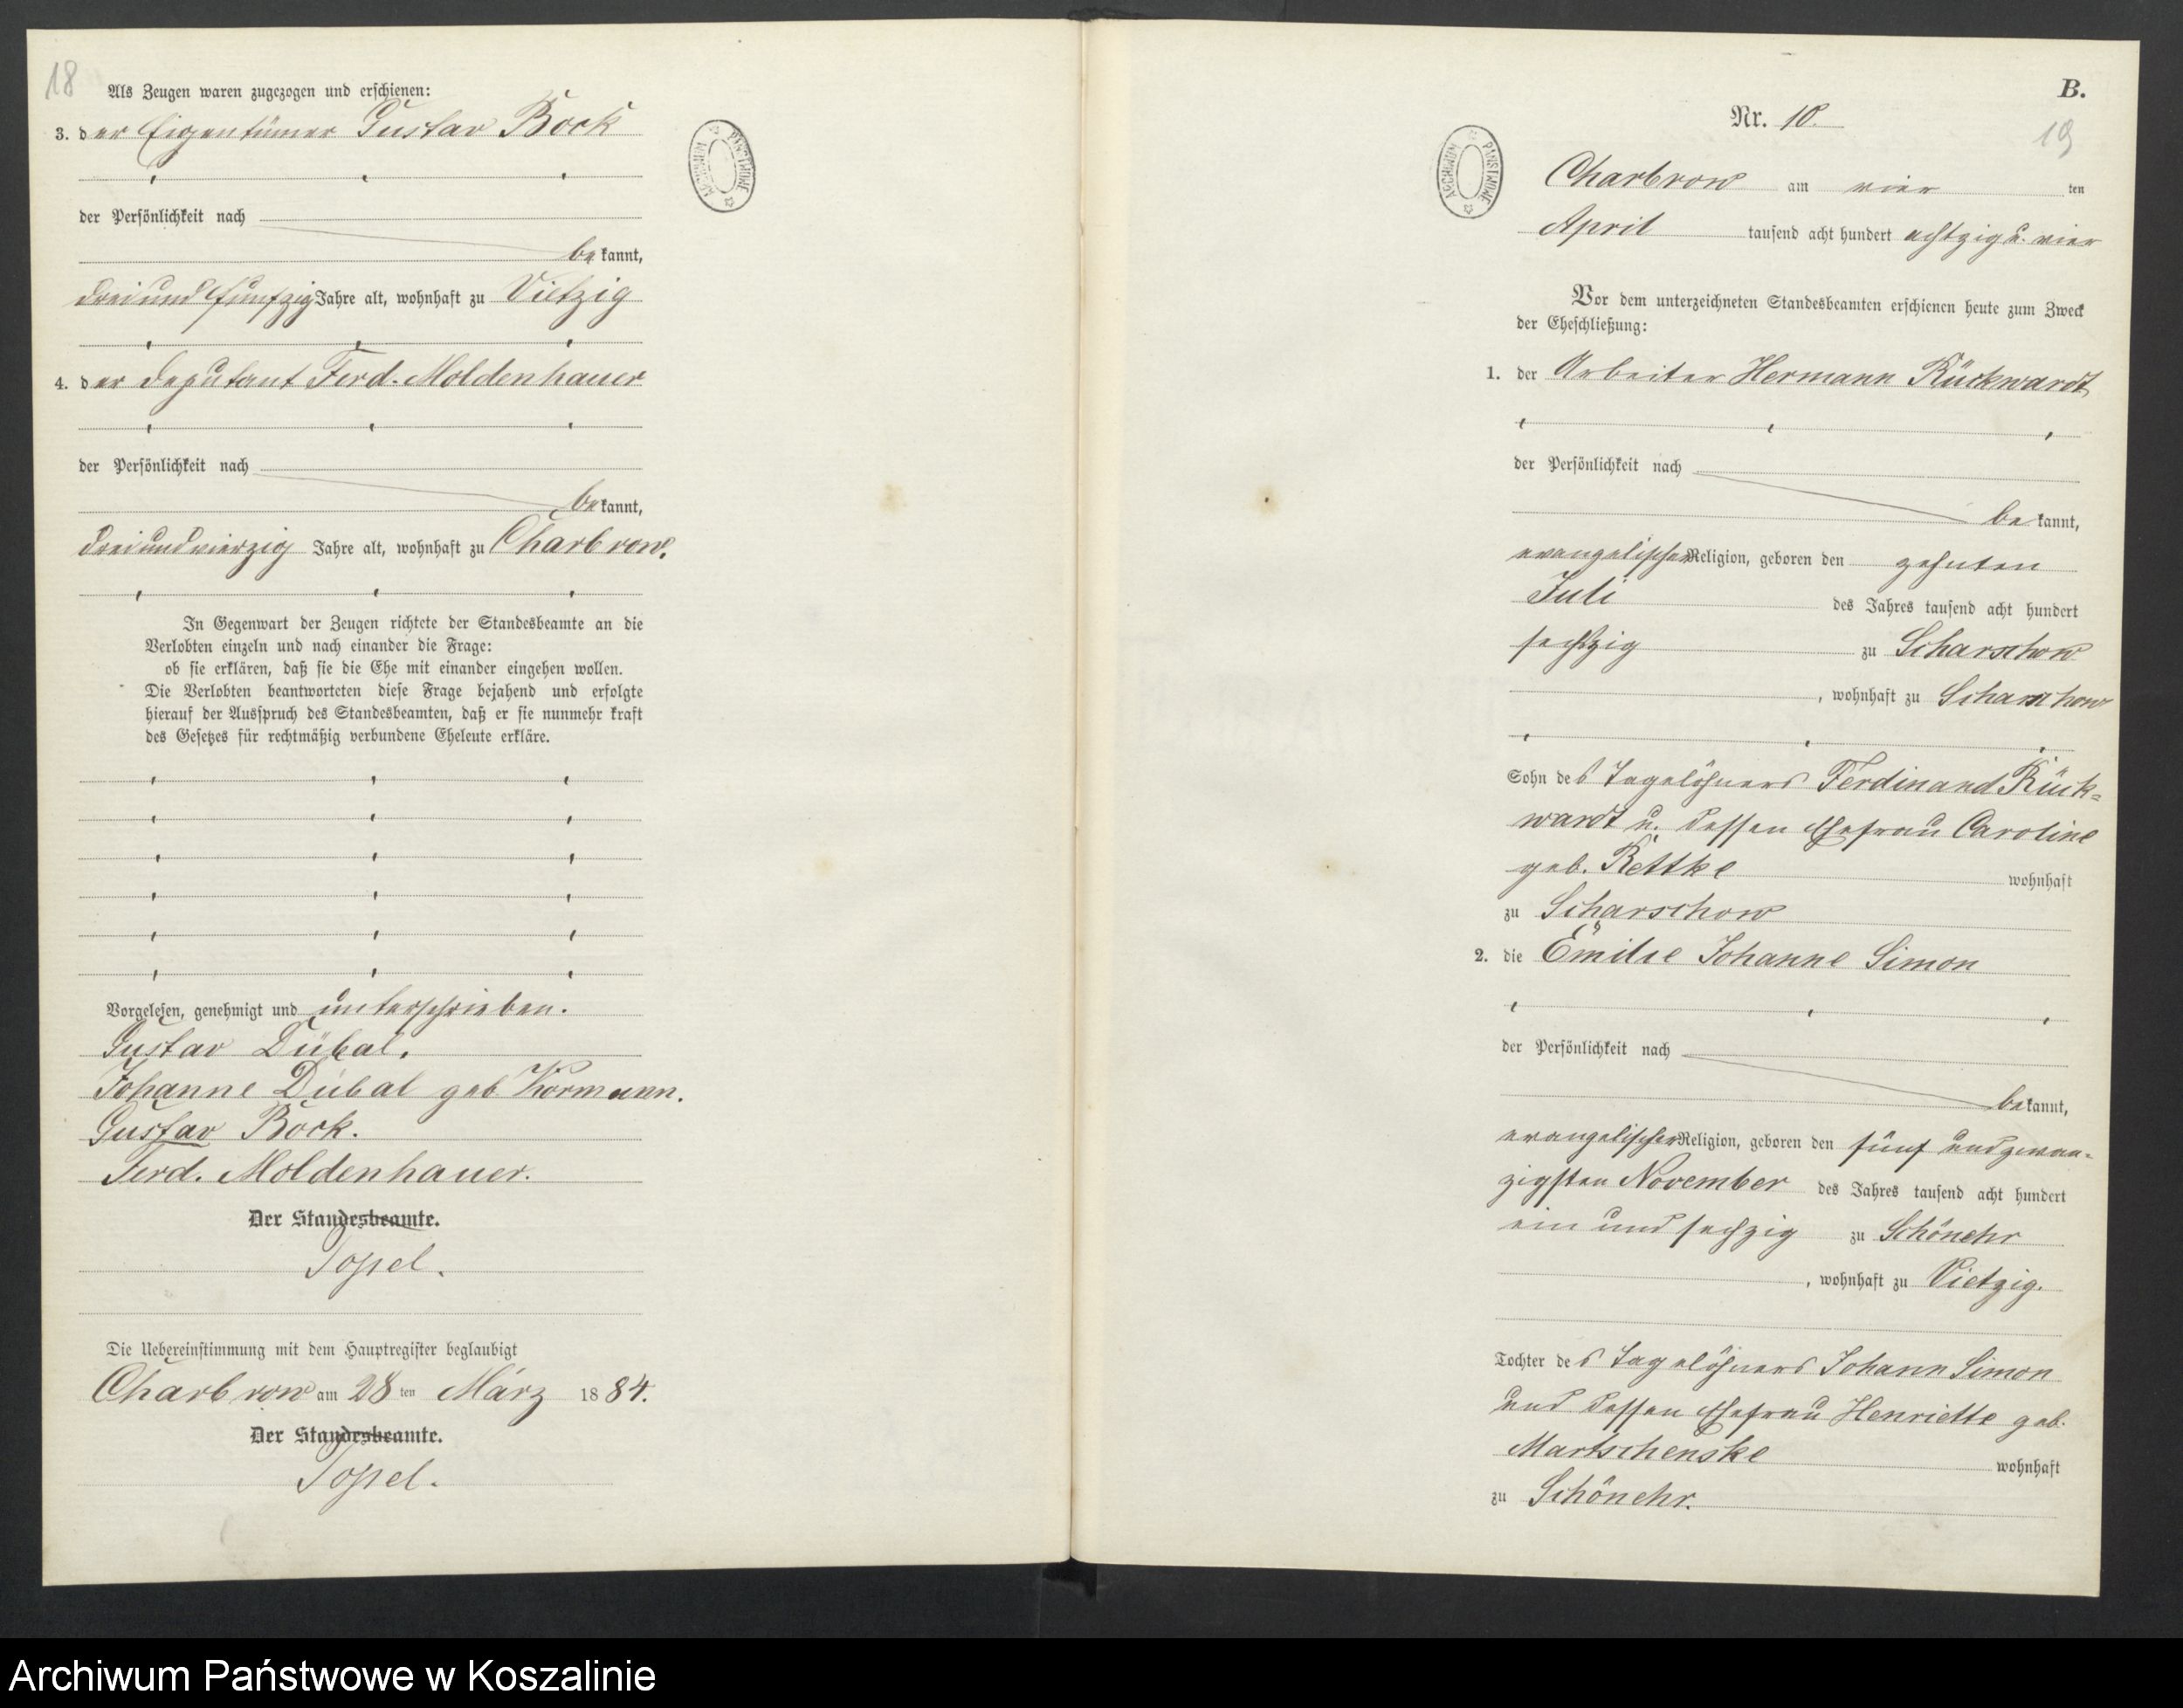 18
Als Zeugen waren zugezogen und erschienen:
3. der Eigentümer Gustav Bock
der Persönlichkeit nach
bekannt,
dreiundfünfzig Jahre alt, wohnhaft zu Vietzig
4. der Deputant Ferd. Moldenhauer
der Persönlichkeit nach
bekannt,
dreiundvierzig Jahre alt, wohnhaft zu Charbrow.
In Gegenwart der Zeugen richtete der Standesbeamte an die
Verlobten einzeln und nach einander die Frage:
ob sie erklären, daß sie die Ehe mit einander eingehen wollen.
Die Verlobten beantworteten diese Frage bejahend und erfolgte
hierauf der Ausspruch des Standesbeamten, daß er sie nunmehr kraft
des Gesetzes für rechtmäßig verbundene Eheleute erkläre.
Vorgelesen, genehmigt und unterschrieben.
Gustav Dübal.
Johanne Dübal geb Kormann.
Gustav Bock.
Ferd. Moldenhauer.
Der Standesbeamte.
Die Uebereinstimmung mit dem Hauptregister beglaubigt
Charbrow am 28ten März 1884.
Der Standesbeamte.
ARCHIWUM PAŃSTWOWE
B.
Nr. 10.
19
ARCHIWUM PAŃSTWOWE
Charbrow am vierten
April tausend acht hundert achtzig u. vier
Vor dem unterzeichneten Standesbeamten erschienen heute zum Zweck
der Eheschließung:
1. der Arbeiter Hermann Rückwardt
der Persönlichkeit nach
bekannt,
evangelischer Religion, geboren den zehnten
Juli des Jahres tausend acht hundert
sechszig zu Scharschow
, wohnhaft zu Scharschow
Sohn des Tagelöhners Ferdinand Rück=
wardt u. dessen Ehefrau Caroline
geb. Rettke wohnhaft
zu Scharschow
2. die Emilie Johanne Simon
der Persönlichkeit nach
bekannt,
evangelischer Religion, geboren den fünf undzwan=
zigsten November des Jahres tausend acht hundert
ein und sechzig zu Schönehr
, wohnhaft zu Vietzig.
Tochter des Tagelöhners Johann Simon
und dessen Ehefrau Henriette geb.
Martschenske wohnhaft
zu Schönehr.
Archiwum Państwowe w Koszalinie